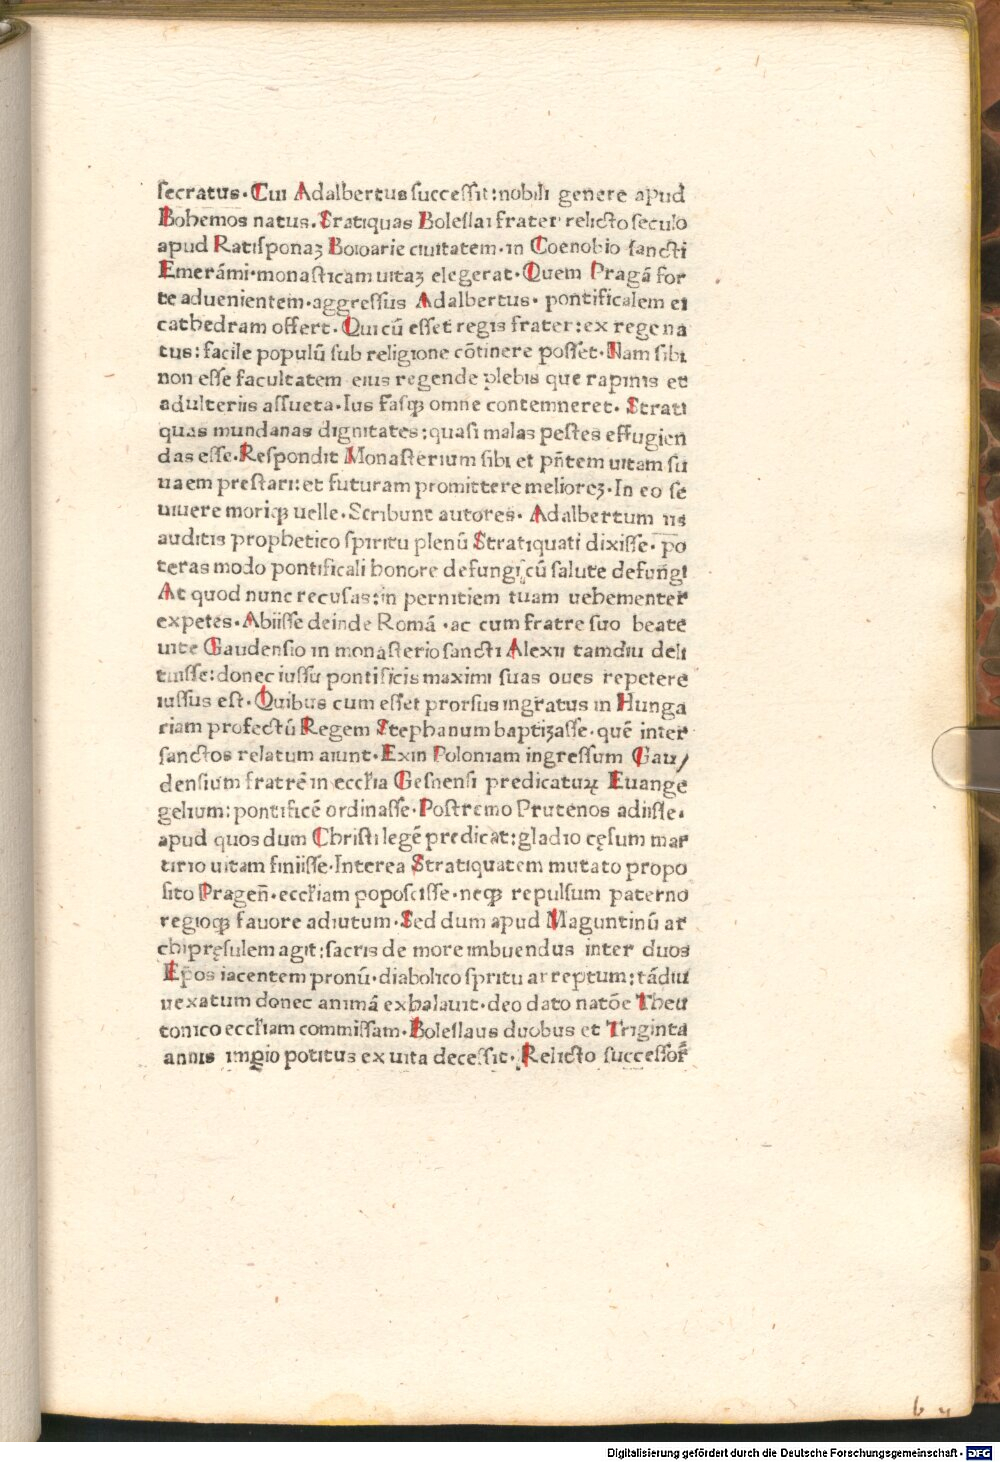 ſecratus. Cui Adalbertus ſucceſſit: nobili genere apud
Bohemos natus. Stratiquas Boleſlai frater relicto ſeculo
apud Ratiſponaꝫ Boioarie ciuitatem. in Coenobio ſancti
Emerāmi. monaſticam uitaꝫ elegerat. Quem Pragā for
te aduenientem. aggreſſus Adalbertus. pontificalem ei
cathedram offert. Qui cū eſſet regis frater: ex rege na
tus: facile populū ſub religione cōtinere poſſet. Nam ſibi
non eſſe facultatem eius regende plebis que rapinis et
adulteriis aſſueta. Ius faſqꝫ omne contemneret. Strati
quas mundanas dignitates: quaſi malas peſtes effugien
das eſſe. Reſpondit Monaſterium ſibi et pn̄tem uitam ſu
uaem preſtari: et futuram promittere melioreꝫ. In eo ſe
uiuere moriqꝫ uelle. Scribunt autores. Adalbertum iis
auditis prophetico ſpiritu plenū Stratiquati dixiſſe. po
teras modo pontificali honore defungi, cū ſalute defun̄gi
At quod nunc recuſas: in pernitiem tuam uehementer
expetes. Abiiſſe deinde Romā. ac cum fratre ſuo beate
uite Gaudenſio in monaſterio ſancti Alexii tamdiu deli
tuiſſe: donec iuſſu pontificis maximi ſuas oues repetere
iuſſus eſt. Quibus cum eſſet prorſus ingratus in Hunga
riam profectū Regem Stephanum baptiꝫaſſe. quē inter
ſanctos relatum aiunt. Exin Poloniam ingreſſum Gau/
denſium fratrē in eccłia Geſnenſi predicatuꝝ Euange
gelium: pontificē ordinaſſe. Poſtremo Prutenos adiiſſe.
apud quos dum Chriſti legē predicat: gladio cęſum mar
tirio uitam finiiſſe. Interea Stratiquatem mutato propo
ſito Pragen̄. eccłiam popoſciſſe. neqꝫ repulſum paterno
regioqꝫ fauore adiutum. Sed dum apud Maguntinū ar
chipręſulem agit: ſacris de more imbuendus inter duos
Ep̄os iacentem pronū. diabolico ſpritu arreptum: tādiu
uexatum donec animā exhalauit. deo dato natōe Theu
tonico eccłiam commiſſam. Boleſlaus duobus et Triginta
annis imꝑio potitus ex uita deceſſit. Relicto ſucceſſor̄
b 4
Digitalisierung gefördert durch die Deutsche Forschungsgemeinschaft - DFG